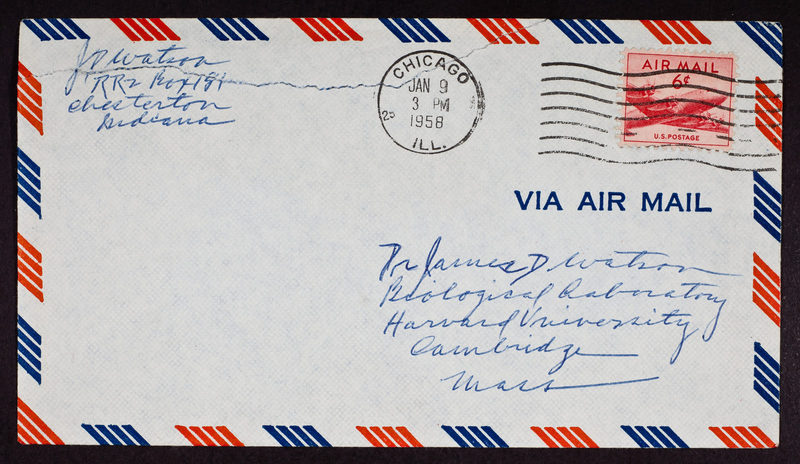 JD Watson
RR2 Box 181
Chesterton
Indiana
CHICAGO
JAN 9
3 PM
1958
ILL.
AIR MAIL
6¢
U.S. POSTAGE
VIA AIR MAIL
Dr James D Watson
Biological Laboratory
Harvard University
Cambridge
Mass